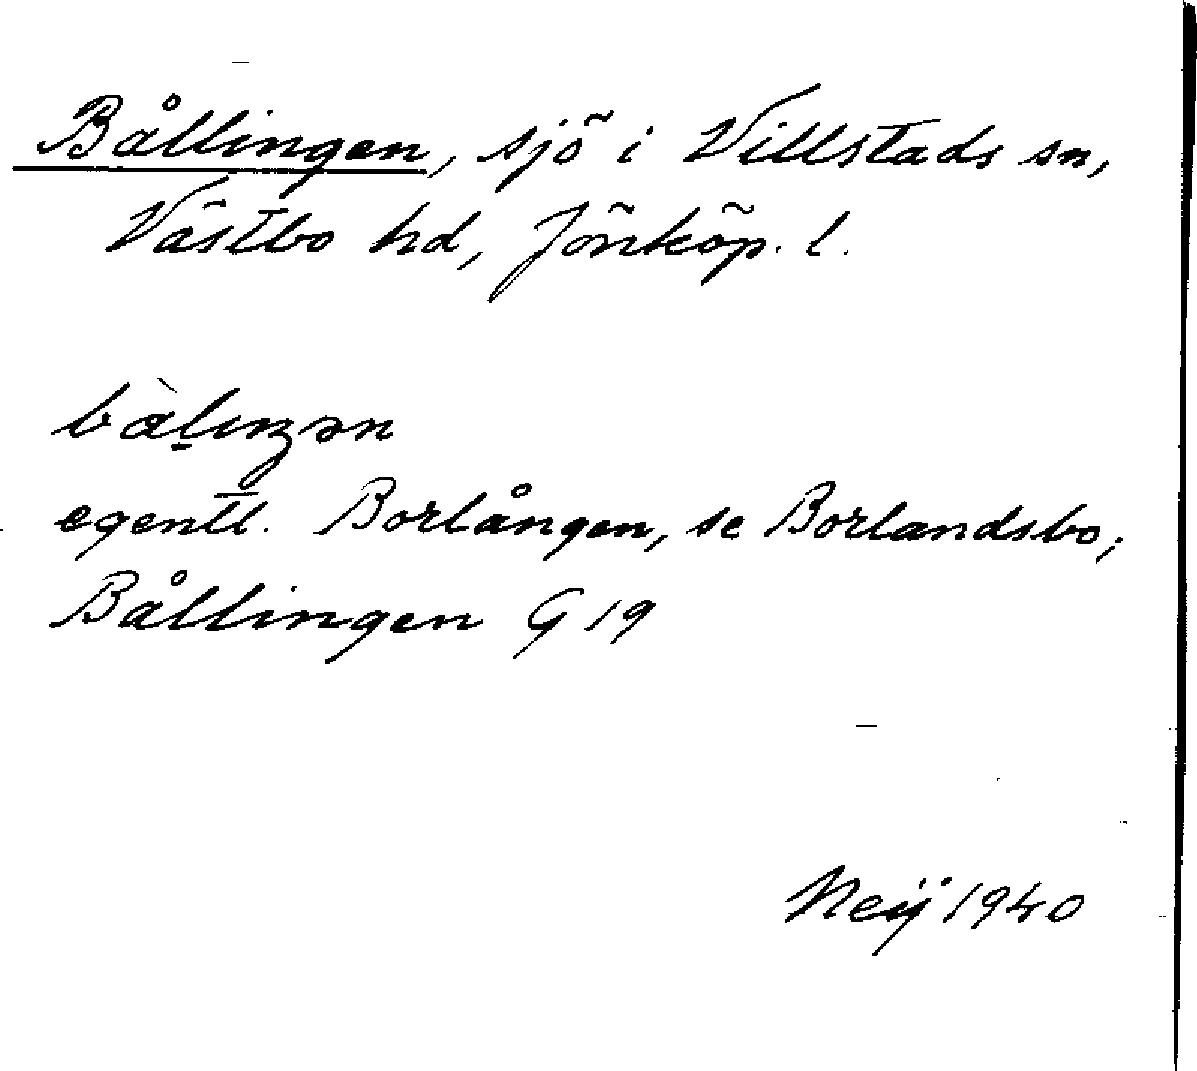 Bållingen, sjö i Villstads sn,
Västbo hd, Jönköp. l.
bàḷıŋən
egentl. Borlången, se Borlandsbo;
Bållingen G 19
Neij 1940